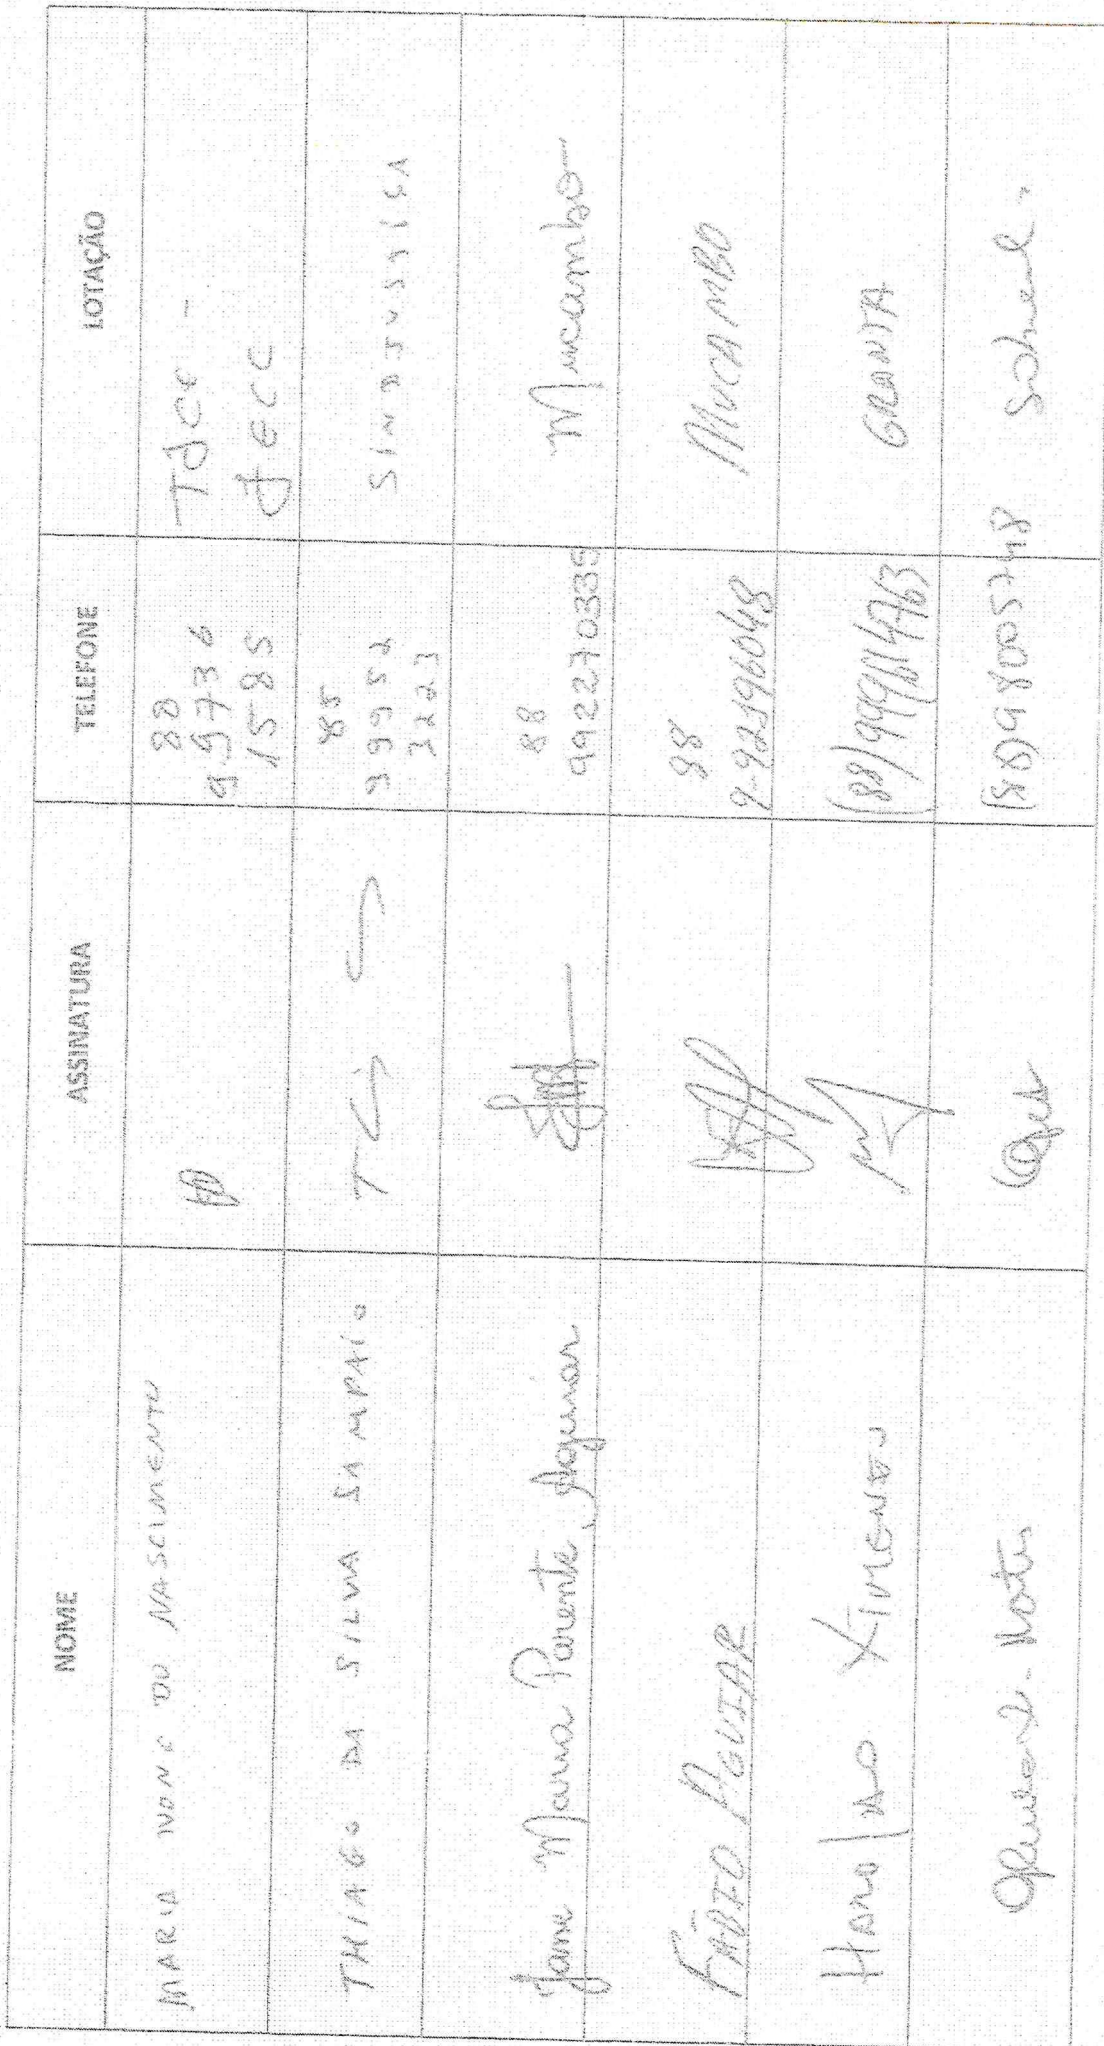 NOME ASSINATURA TELEFONE LOTAÇÃO
MARIA IVONE DO NASCIMENTO 88 9.9736 1585 TJCE - JECC
THIAGO DA SILVA SAMPAIO 85 99952 3223 SINDJUSTIÇA
Jane Maria Parente Aguiar 88 992270335 Mucambo
FÁBIO AGUIAR 88 9.92396048 MUCAMBO
Haroldo XIMENES (88) GRANJA
Sobral.